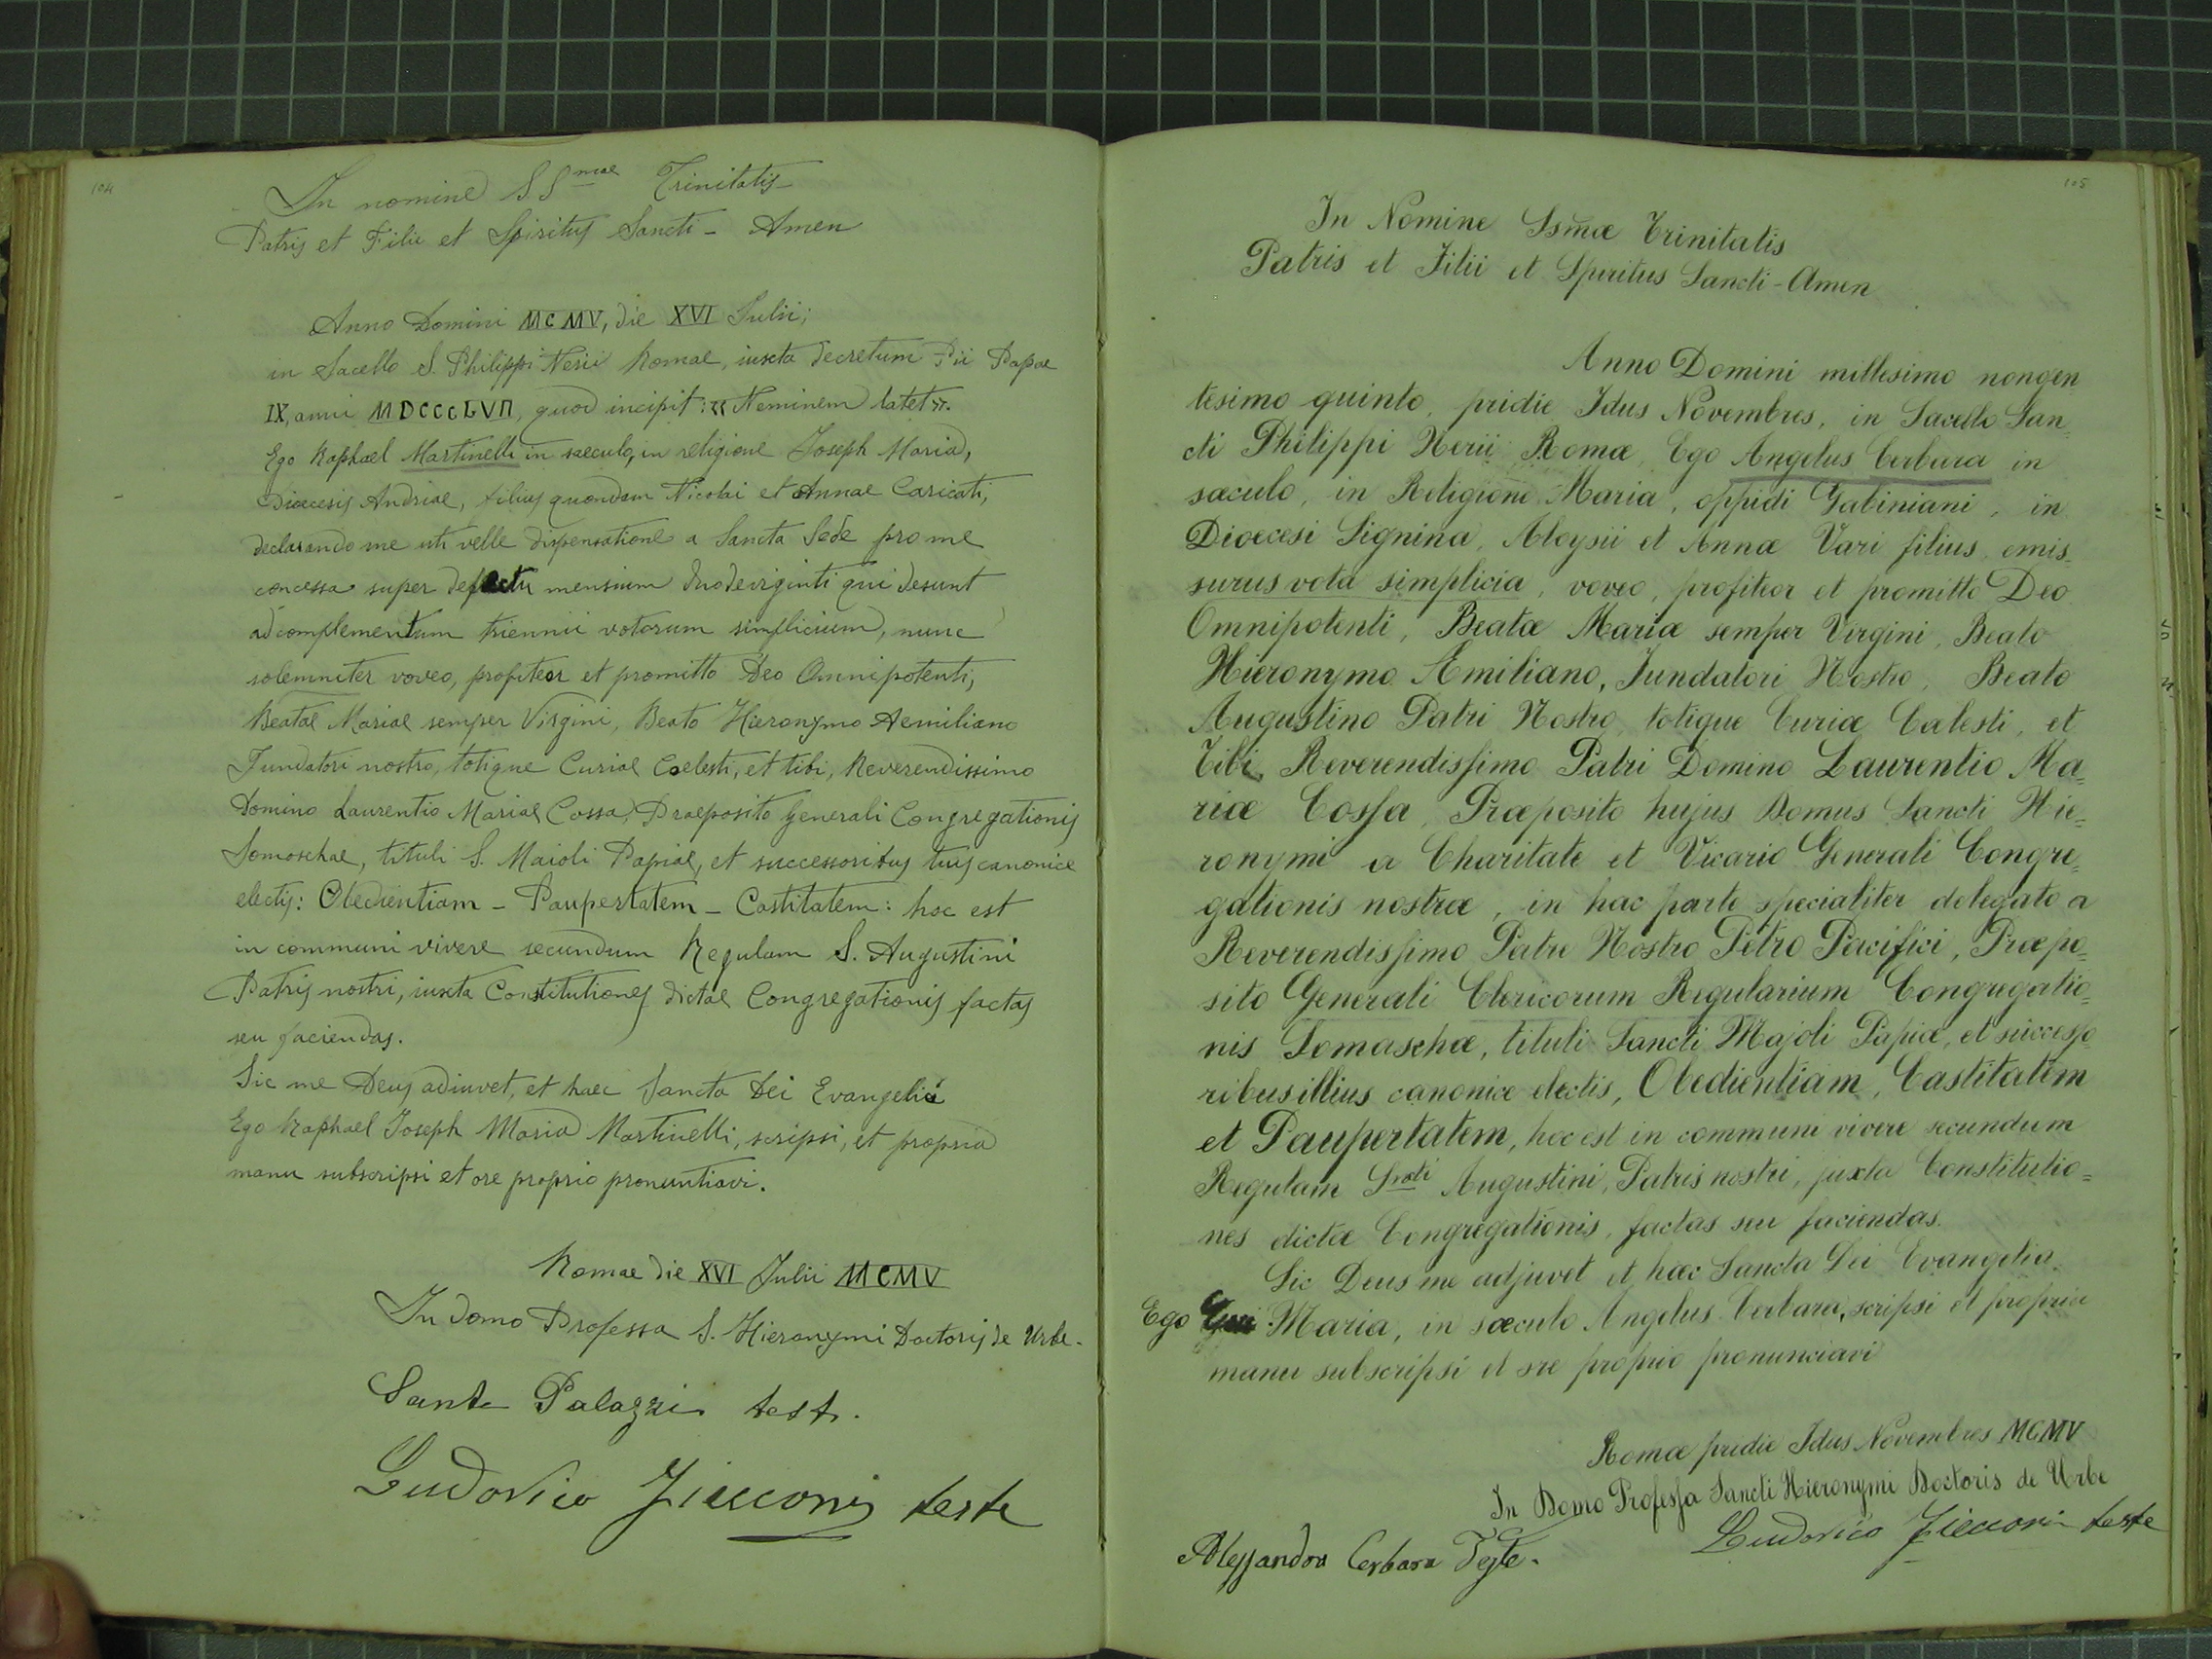 104
In nomine SSmae Trinitatis
Patris et Filii et Spiritus Sancti - Amen
Anno Domini MCMV, die XVI Julii;
in Sacello S. Philippi Nerii Romae, iuxta decretum Pii Papae
IX, anni MDCCCLVII, quod incipit: « Neminem latet ».
Ego Raphael Martinelli in saeculo, in religione Joseph Maria,
Dioecesis Andriae, filius quondam Nicolai et Annae Caricati,
declarando me uti velle dispensatione a Sancta Sede pro me
concessa super defectu mensium duodeviginti qui desunt
ad complementum triennii votorum simplicium, nunc
solemniter voveo, profiteor et promitto Deo Omnipotenti,
Beatae Mariae semper Virgini, Beato Hieronymo Aemiliano
Fundatori nostro, totique Curiae Coelesti, et tibi, Reverendissimo
Domino Laurentio Mariae Cossa, Praeposito Generali Congregationis
Somaschae, tituli S. Maioli Papiae, et successoribus tuis canonice
electis: Obedientiam - Paupertatem - Castitatem: hoc est
in communi vivere secundum Regulam S. Augustini
Patris nostri, iuxta Constitutiones dictae Congregationis factas
seu faciendas.
Sic me Deus adiuvet, et haec Sancta Dei Evangelia
Ego Raphael Joseph Maria Martinelli, scripsi, et propria
manu subscripsi et ore proprio pronuntiavi.
Romae die XVI Julii MCMV
In domo Professa S. Hieronymi Doctoris de Urbe.
Sante Palazzi test.
Ludovico Zicconi teste
105
In Nomine Ssmæ Trinitatis
Patris et Filii et Spiritus Sancti - Amen
Anno Domini millesimo nongen
tesimo quinto, pridie Idus Novembres, in Sacello San
cti Philippi Nerii Romæ, Ego Angelus Cerbara in
sæculo, in Religione Maria, oppidi Gabiniani, in
Dioecesi Signina, Aloysii et Annæ Vari filius, emis=
surus vota simplicia, voveo, profiteor et promitto Deo
Omnipotenti, Beatæ Mariæ semper Virgini, Beato
Hieronymo Æmiliano, Fundatori Nostro, Beato
Augustino Patri Nostro, totique Curiæ Cælesti, et
Tibi, Reverendissimo Patri Domino Laurentio Ma=
riæ Cossa, Præposito hujus Domus Sancti Hie=
ronymi a Charitate et Vicario Generali Congre=
gationis nostræ, in hac parte specialiter delegato a
Reverendissimo Patre Nostro Petro Pacifici, Præpo=
sito Generali Clericorum Regularium Congregatio=
nis Somaschæ, tituli Sancti Majoli Papiæ, et successo
ribus illius canonice electis, Obedientiam, Castitatem
et Paupertatem, hoc est in communi vivere secundum
Regulam Sncti Augustini, Patris nostri, juxta Constitutio=
nes dictæ Congregationis, factas seu faciendas.
Sic Deus me adjuvet et hæc Sancta Dei Evangelia.
Ego Maria, in sæculo Angelus Cerbara, scripsi et propria
manu subscripsi et ore proprio pronunciavi
Romæ pridie Idus Novembres MCMV
In Domo Professa Sancti Hieronymi Doctoris de Urbe
Ludovico Zicconi teste
Alessandro Cerbara Teste.